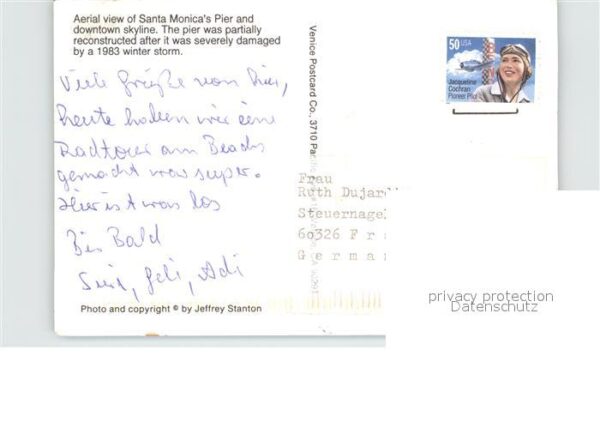 Aerial view of Santa Monica's Pier and
downtown skyline. The pier was partially
reconstructed after it was severely damaged
by a 1983 winter storm.
Viele Grüße von hier,
heute haben wir eine
Radtour am Beach
gemacht war super.
Hier ist was los
Bis Bald
Geli, Adi
Photo and copyright © by Jeffrey Stanton
Venice Postcard Co., 3710 Pa
50 USA
Jacqueline
Cochran
Pioneer Pilot
Frau
Ruth Dujar
Steuernagel
60326 Fr
Germa
privacy protection
Datenschutz